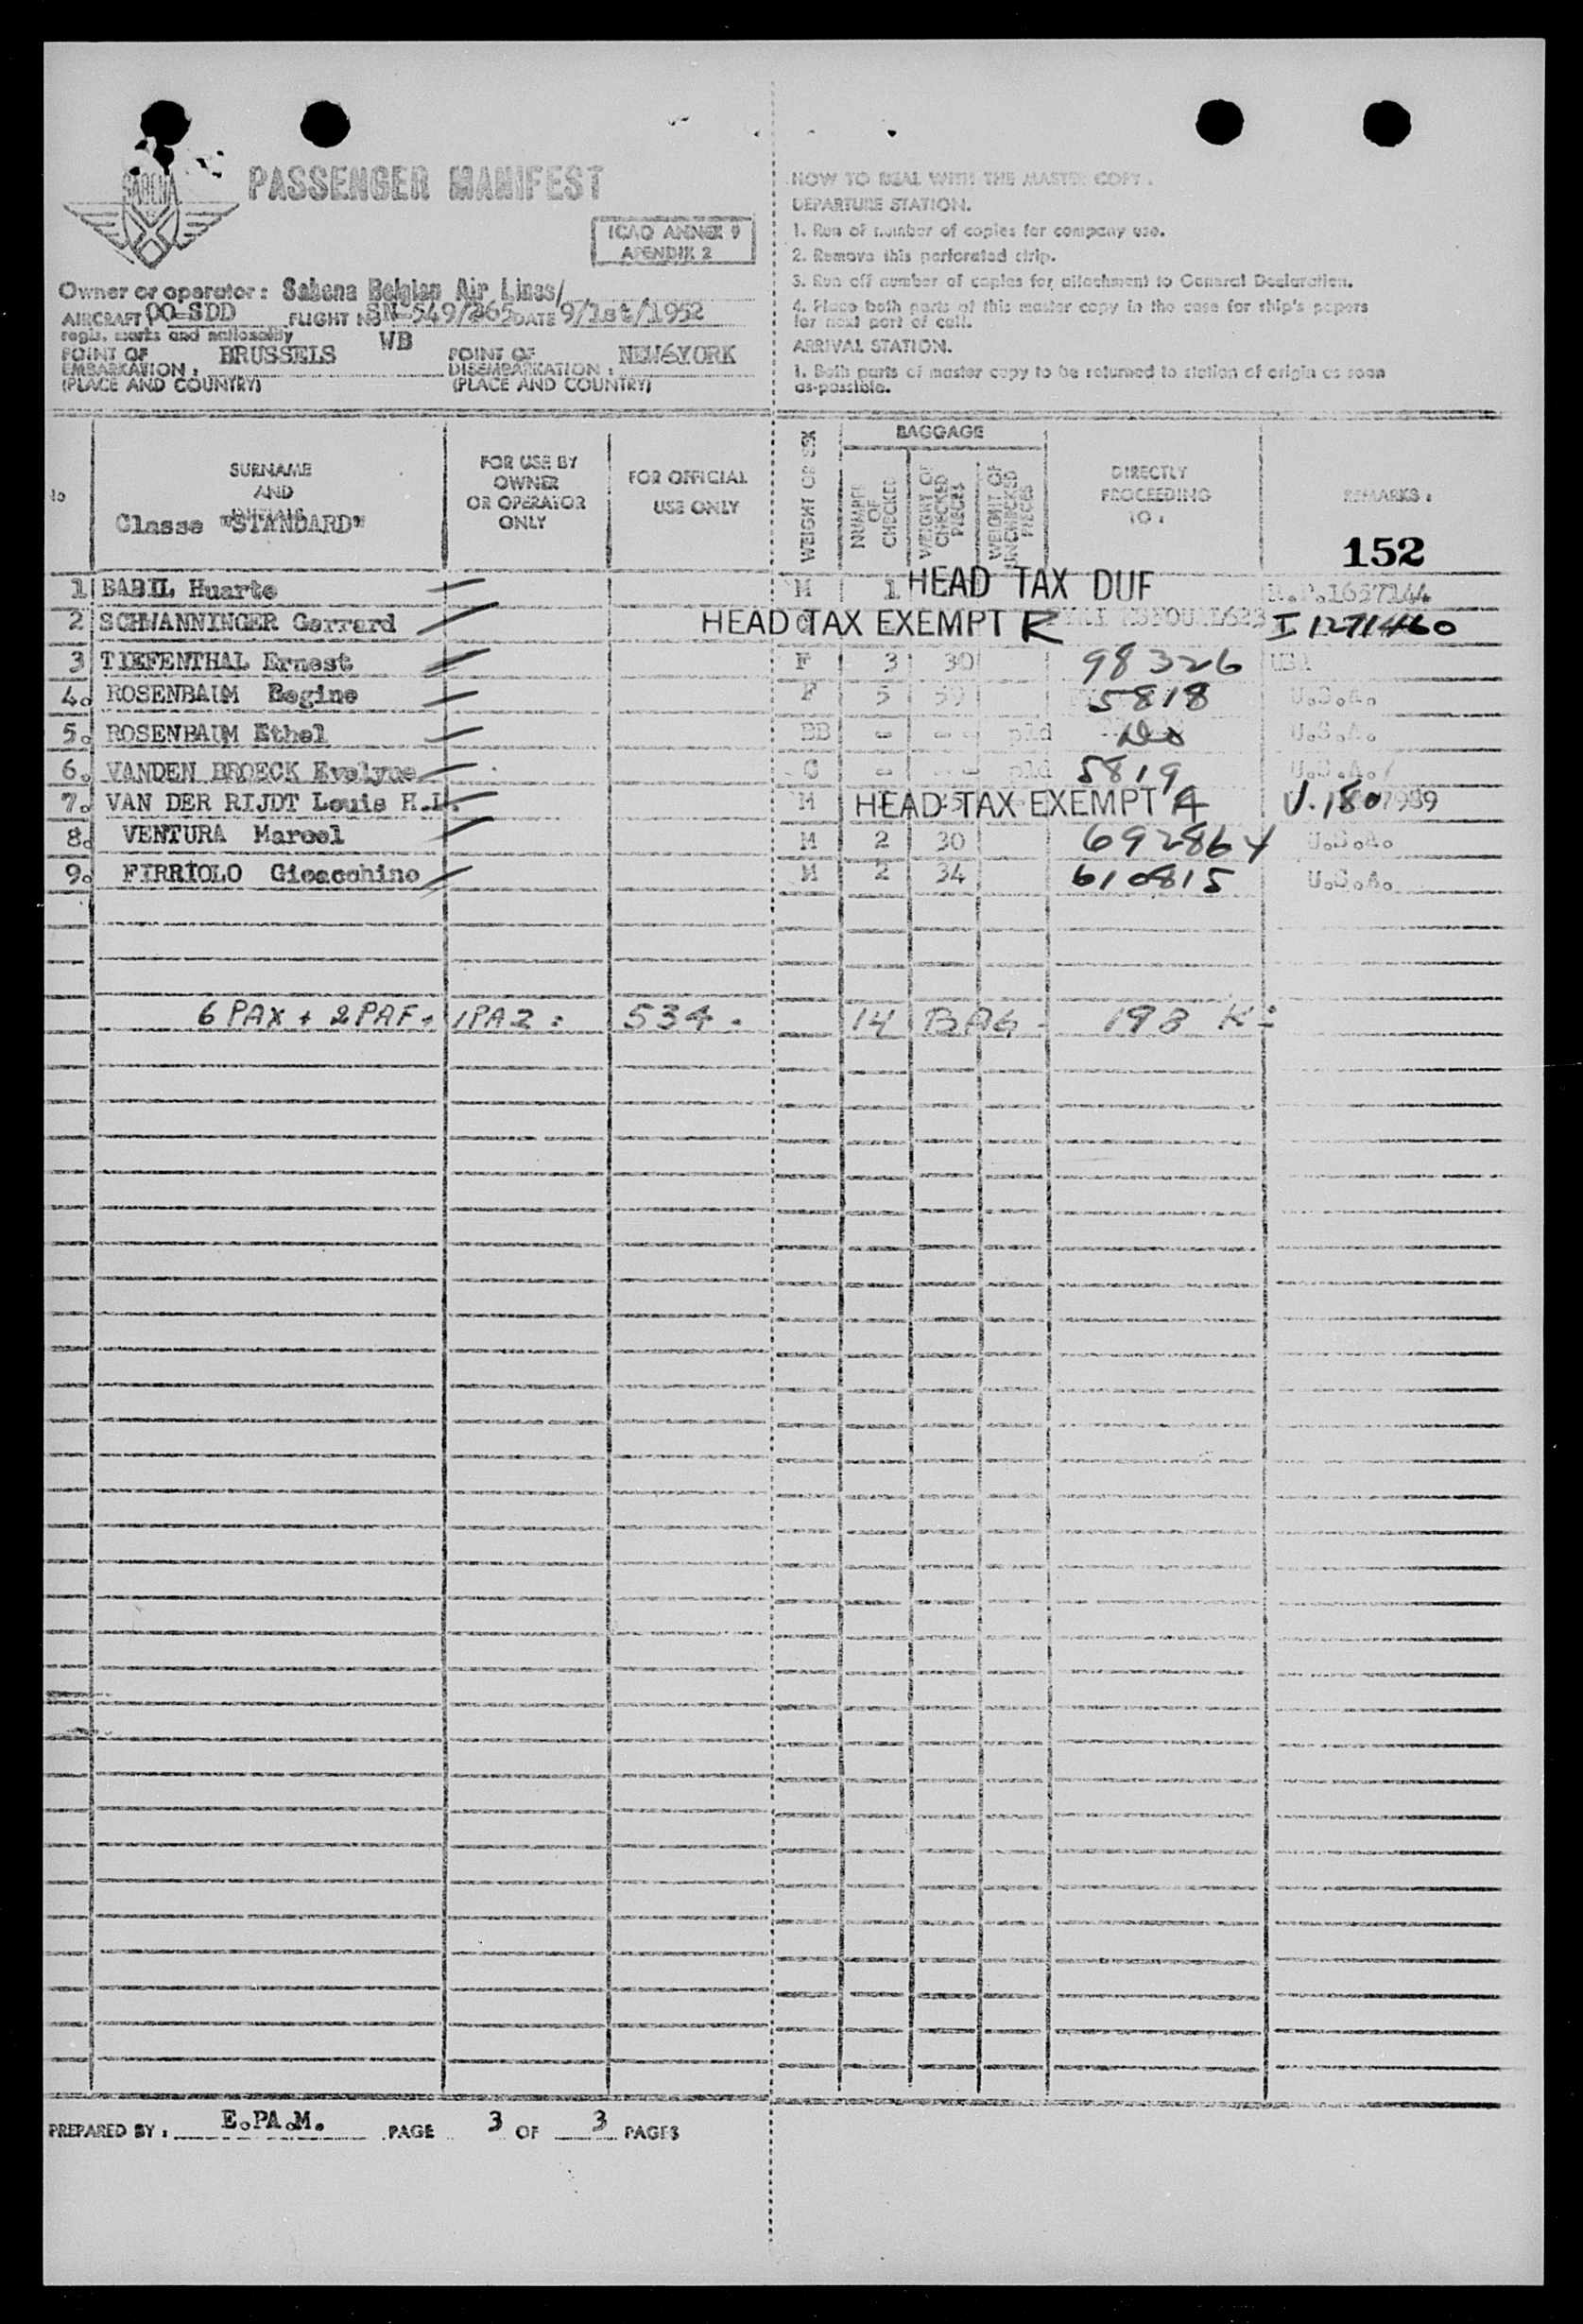 SABENA
PASSENGER MANIFEST
ICAO ANNEX 9
APENDIX 2
Owner or operator : Sabena Belgian Air Lines/
AIRCRAFT OO-SDD FLIGHT No SN-549/265 DATE 9/1st/1952
regis. marks and nationality WB
POINT OF EMBARKATION : BRUSSELS POINT OF DISEMBARKATION : NEW-YORK
(PLACE AND COUNTRY) (PLACE AND COUNTRY)
HOW TO DEAL WITH THE MASTER COPY.
DEPARTURE STATION.
1. Run of number of copies for company use.
2. Remove this perforated strip.
3. Run off number of copies for attachment to General Declaration.
4. Place both parts of this master copy in the case for ship's papers
for next port of call.
ARRIVAL STATION.
1. Both parts of master copy to be returned to station of origin as soon
as possible.
No
SURNAME
AND
INITIALS
Classe "STANDARD"
FOR USE BY
OWNER
OR OPERATOR
ONLY
FOR OFFICIAL
USE ONLY
WEIGHT OR SEX
BAGGAGE
NUMBER
OF
CHECKED
WEIGHT OF
CHECKED
PIECES
WEIGHT OF
UNCHECKED
PIECES
DIRECTLY
PROCEEDING
TO :
REMARKS :
152
1 BABIL Huarte M 1 HEAD TAX DUE
2 SCHWANNINGER Gerrard HEAD TAX EXEMPT R I 1271460
3 TIEFENTHAL Ernest F 3 30 98326 USA
4. ROSENBAUM Regine F 5 5818 U.S.A.
5. ROSENBAUM Ethel BB - - - pld Do U.S.A.
6. VANDEN BROECK Evelyne C - - - pld 5819 U.S.A.
7. VAN DER RIJDT Louis H.L. M HEAD TAX EXEMPT A
8. VENTURA Marcel M 2 30 692864 U.S.A.
9. FIRRIOLO Gioacchino M 2 34 610815 U.S.A.
6 PAX + 2 PAF + 1 PAZ : 534. 14 BAG - 193 K:
PREPARED BY : E.PA.M. PAGE 3 OF 3 PAGES